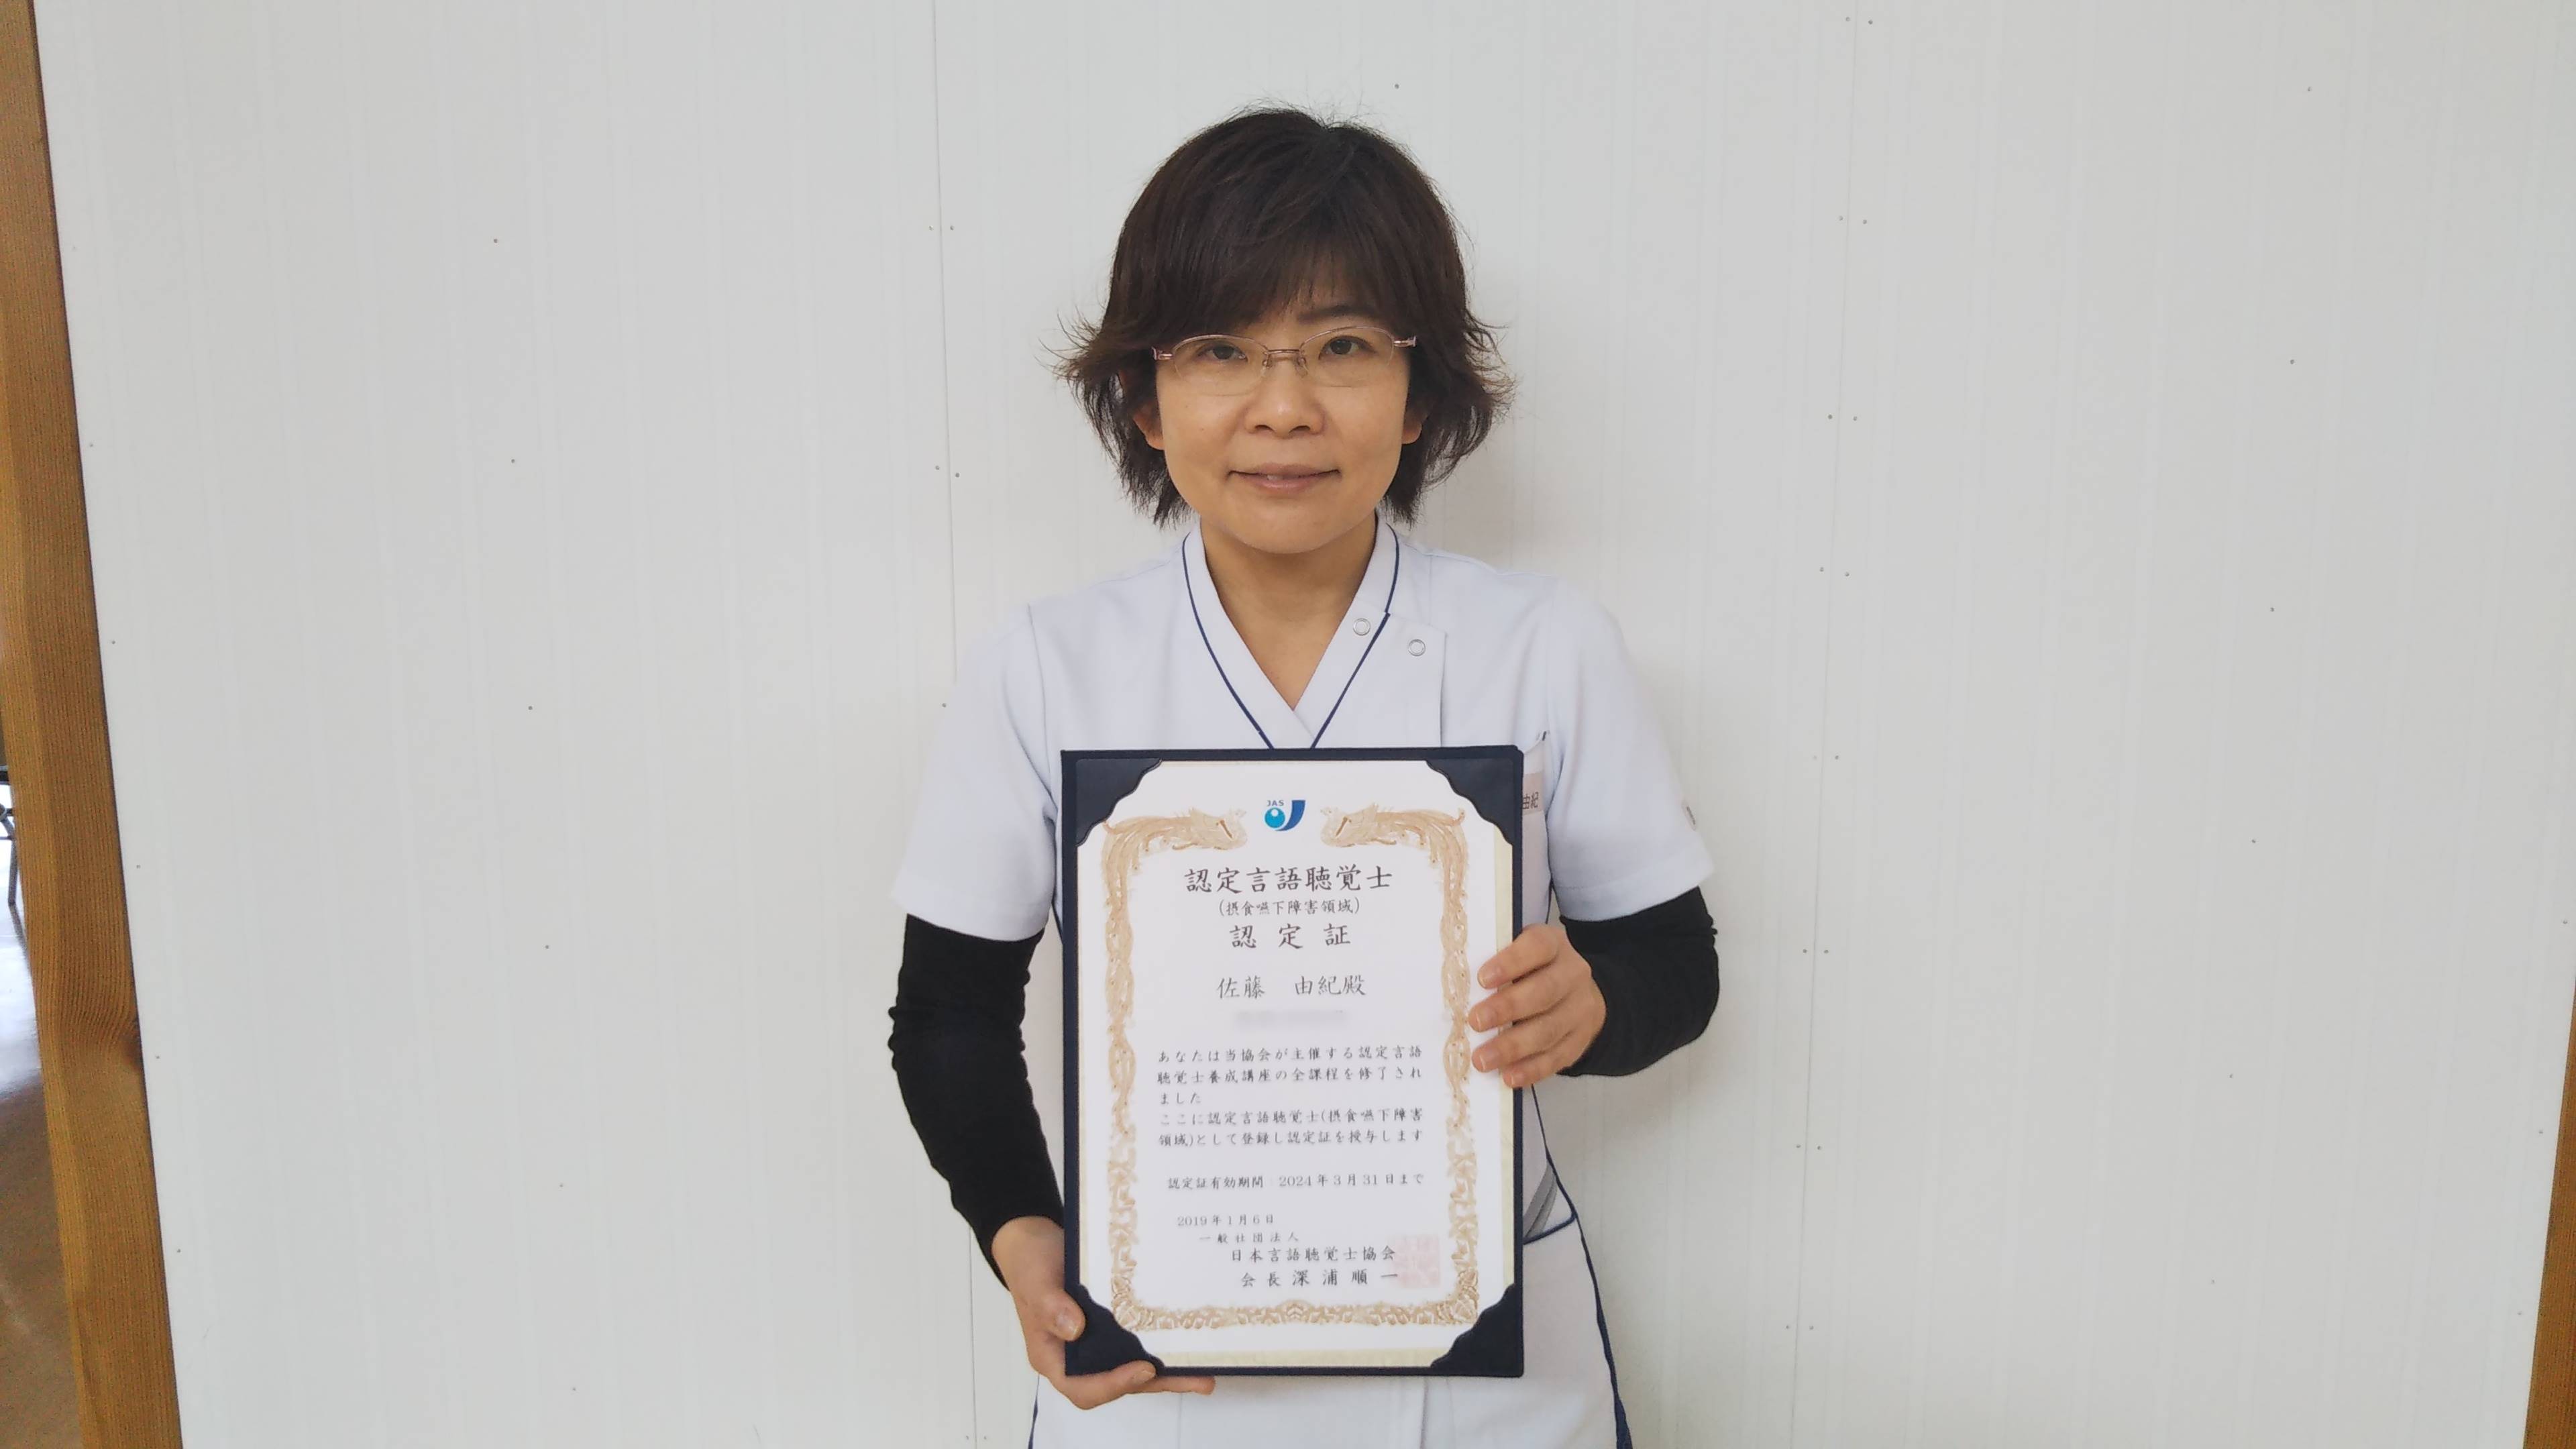 JAS
認定言語聴覚士
(摂食嚥下障害領域)
認定証
佐藤 由紀殿
あなたは当協会が主催する認定言語
聴覚士養成講座の全課程を修了され
ました
ここに認定言語聴覚士(摂食嚥下障害
領域)として登録し認定証を授与します
認定証有効期間 2024年3月31日まで
2019年1月6日
一般社団法人
日本言語聴覚士協会
会長 深浦順一
由紀